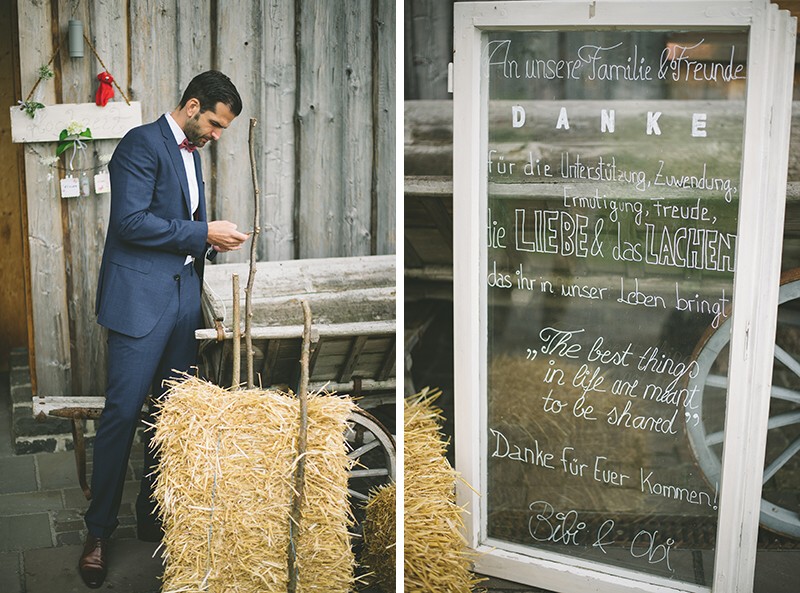 An unsere Familie & Freunde
DANKE
für die Unterstützung, Zuwendung,
Ermutigung, Freude,
die LIEBE & das LACHEN
das ihr in unser Leben bringt
„The best things
in life are meant
to be shared”
Danke für Euer Kommen!
Bibi & Obi